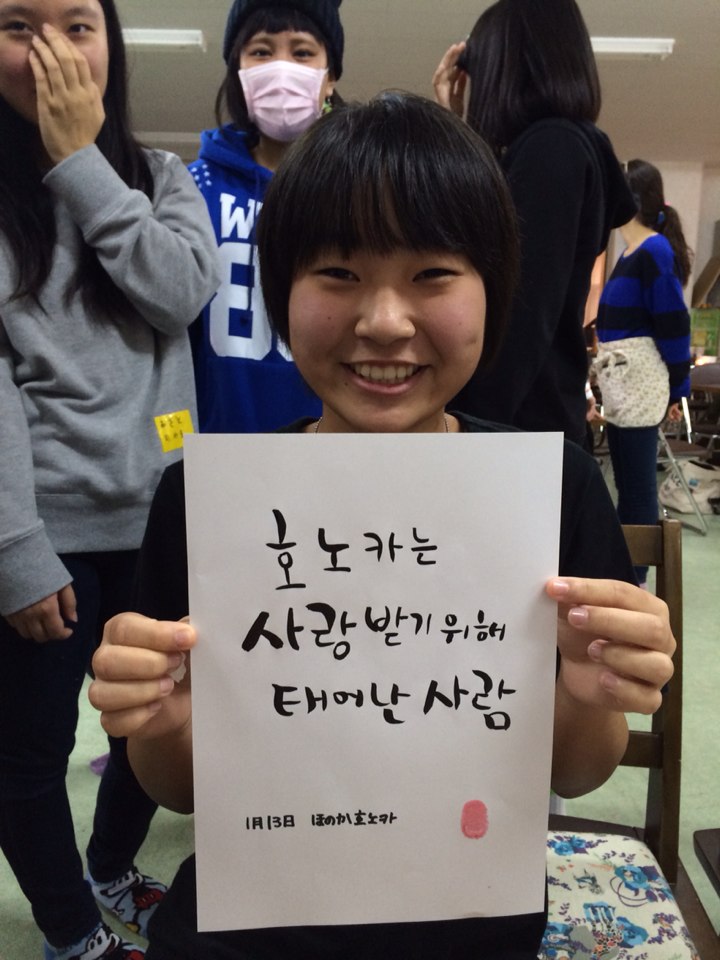 호노카는
사랑받기위해
태어난 사람
1月13日 ほのか호노카